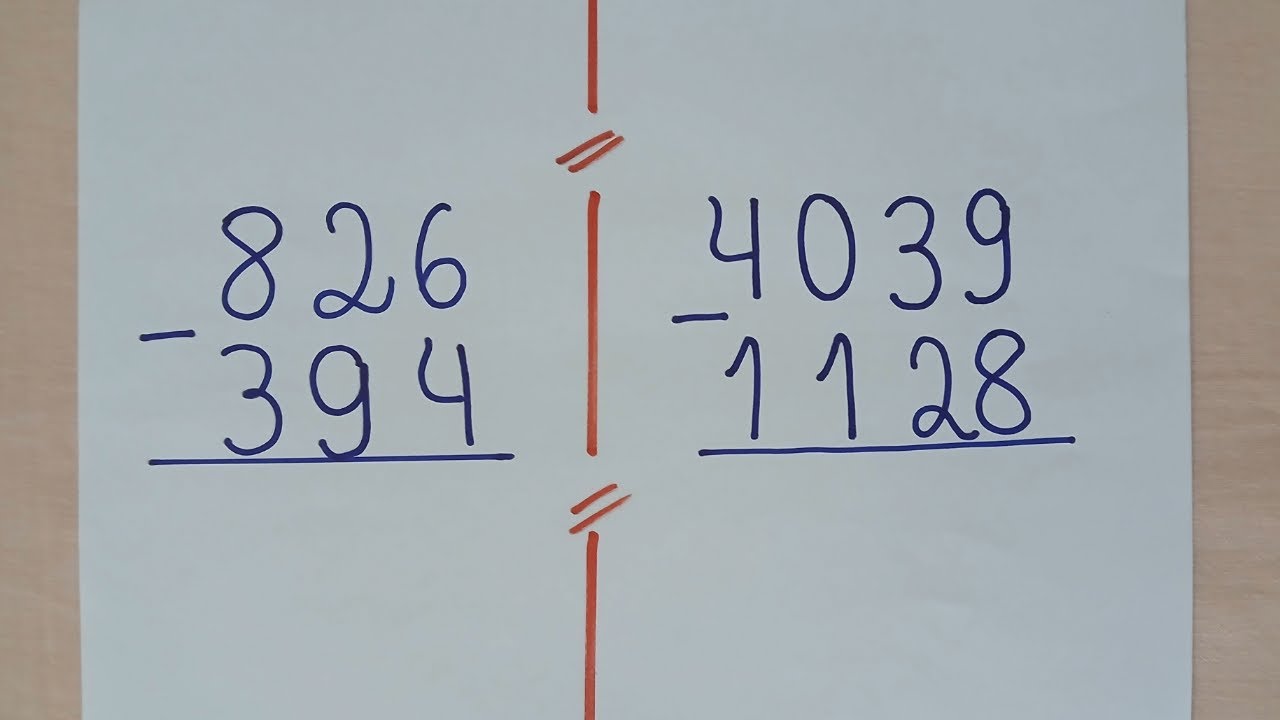 826
- 394
4039
- 1128